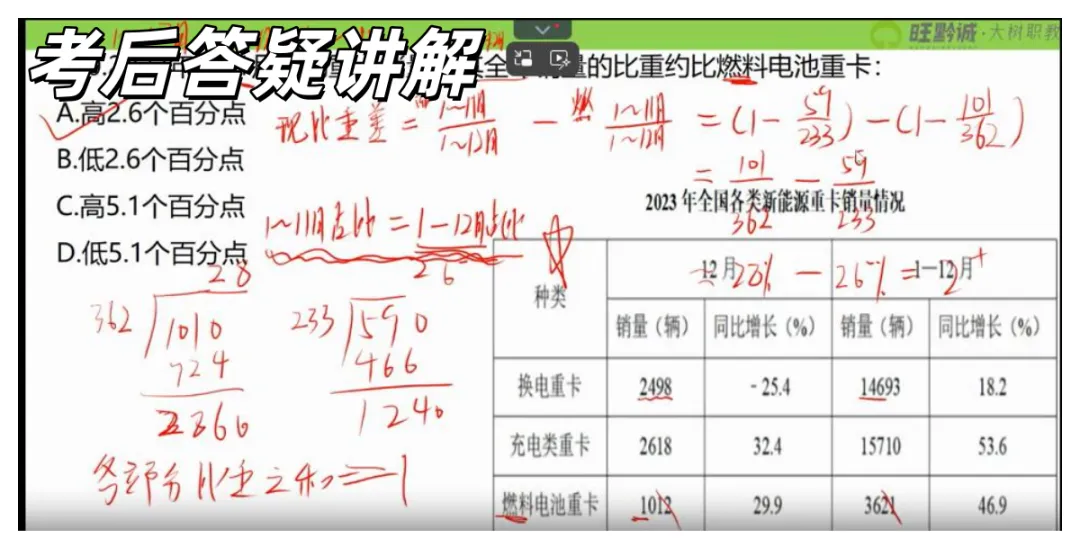 考后答疑讲解
旺黔诚·大树职教
销量的比重约比燃料电池重卡：
A.高2.6个百分点
B.低2.6个百分点
C.高5.1个百分点
D.低5.1个百分点
现比重差 = 1~11月/1~12月 - 燃 1~11月/1~12月 = (1-59/233)-(1-101/362)
= 101/362 - 59/233
1~11月占比 = 1-12月占比
÷ 28% - 26% = 2+
28
362 1010
724
2860
26
233 590
466
1240
各部分比重之和=1
2023 年全国各类新能源重卡销量情况
种类 12 月 1—12 月
销量（辆） 同比增长（%） 销量（辆） 同比增长（%）
换电重卡 2498 -25.4 14693 18.2
充电类重卡 2618 32.4 15710 53.6
燃料电池重卡 1012 29.9 3621 46.9